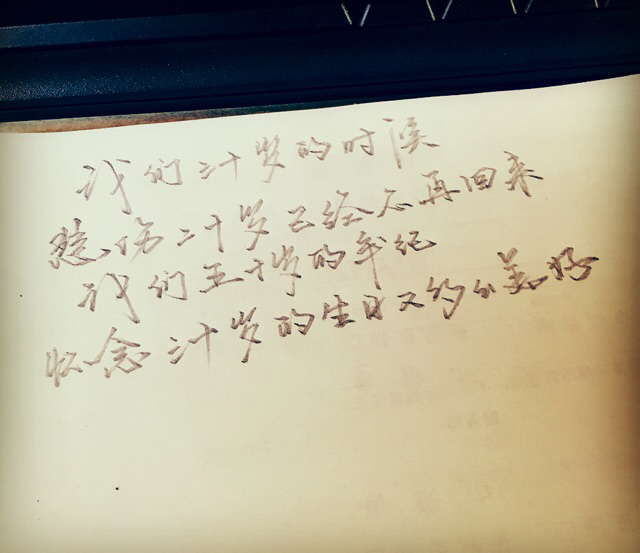 我们三十岁的时候
悲伤二十岁已经不再回来
我们五十岁的年纪
怀念三十岁的生日又多么美好